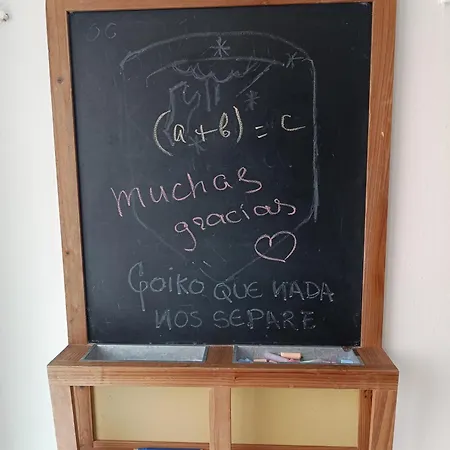 (a + b) = c
muchas
gracias
Goiko QUE NADA
NOS SEPARE